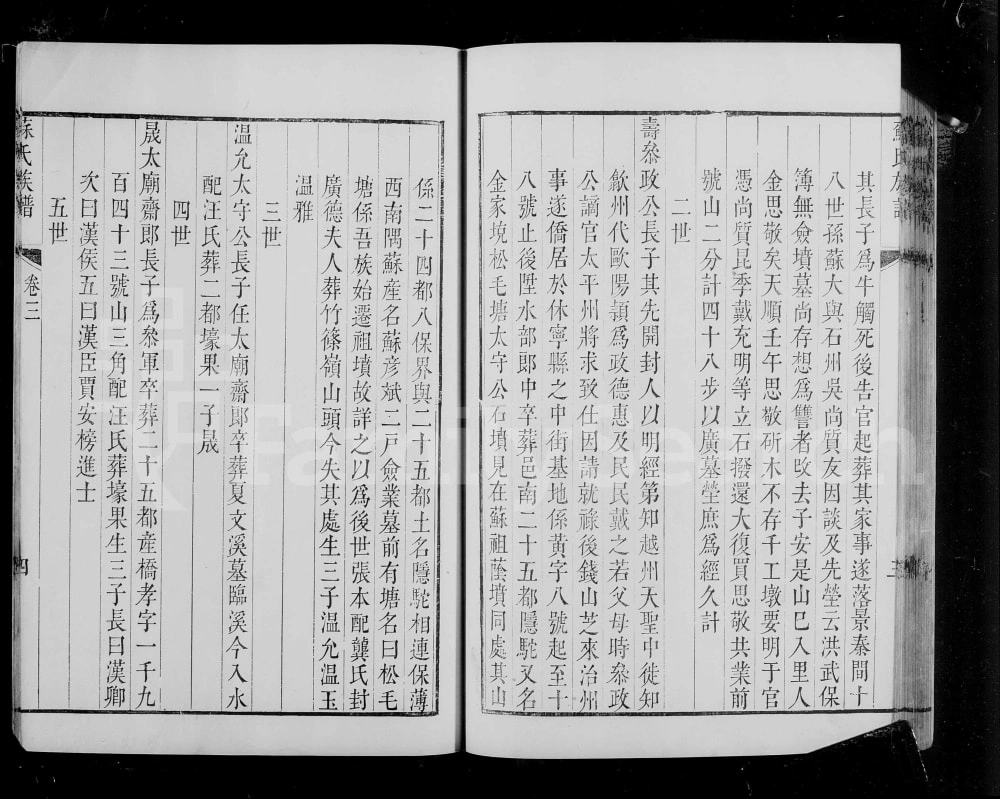 其長子爲牛觸死後告官起葬其家事遂落景泰間十
八世孫蘇大與石州吳尚質友因談及先塋云洪武保
簿無僉墳墓尚存想爲讐者改去子安是山巳入里人
金思敬矣天順壬午思敬斫木不存千工墩要明于官
憑尚質昆季戴充明等立石撥還大復買思敬共業前
號山二分計四十八步以廣墓塋庶爲經久計
二世
壽叅政公長子其先開封人以明經第知越州天聖中徙知
歙州代歐陽潁爲政德惠及民民戴之若父母時叅政
公謫官太平州將求致仕因請就祿後錢山芝來治州
事遂僑居於休寧縣之中街基地係黃字八號起至十
八號止後陞水部郎中卒葬邑南二十五都隱駝又名
金家垸松毛塘太守公石墳見在蘇祖蔭墳同處其山
係二十四都八保界與二十五都土名隱駝相連保薄
西南隅蘇産名蘇彥斌二戸僉業墓前有塘名曰松毛
塘係吾族始遷祖墳故詳之以爲後世張本配龔氏封
廣德夫人葬竹篠嶺山頭今失其處生三子溫允溫玉
溫雅
三世
溫允太守公長子任太廟齋郎卒葬夏文溪墓臨溪今入水
配汪氏葬二都壕果一子晟
四世
晟太廟齋郎長子爲叅軍卒葬二十五都産橋孝字一千九
百四十三號山三角配汪氏葬壕果生三子長曰漢卿
次曰漢侯五曰漢臣賈安榜進士
五世
蘇氏族譜
卷三
四